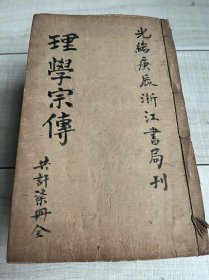 光緒庚辰浙江書局刊
理學宗傳
共計柒冊全